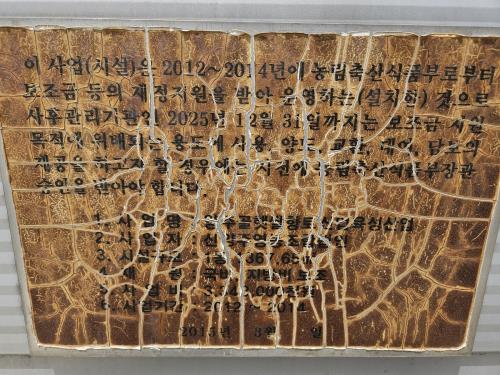 이 사업(시설)은 2012~2014년에 농림축산식품부로부터
보조금 등의 재정지원을 받아 운영하는(설치한) 것으로
사후관리기간인 2025년 12월 31일까지는 보조금 지원
목적에 위배되는 용도에 사용, 양도, 교환, 대여, 담보의
제공을 하고자 할 경우에는 사전에 농림축산식품부장관
승인을 받아야 합니다.
1. 사 업 명 :
2. 사 업 자 :
3.
4. 재 원 : 국비, 지방비 보조
5. 사 업 비 :
6. 사업기간 : 2012 ~ 2014
2015년 3월 일